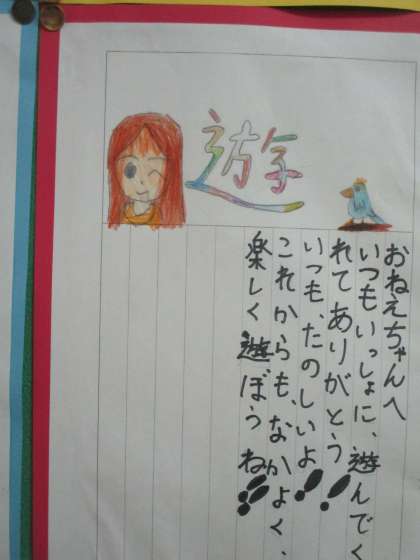 遊
おねえちゃんへ
いつもいっしょに、遊んでく
れてありがとう!
いつも、たのしいよ!!
これからも、なかよく、
楽しく遊ぼうね!!